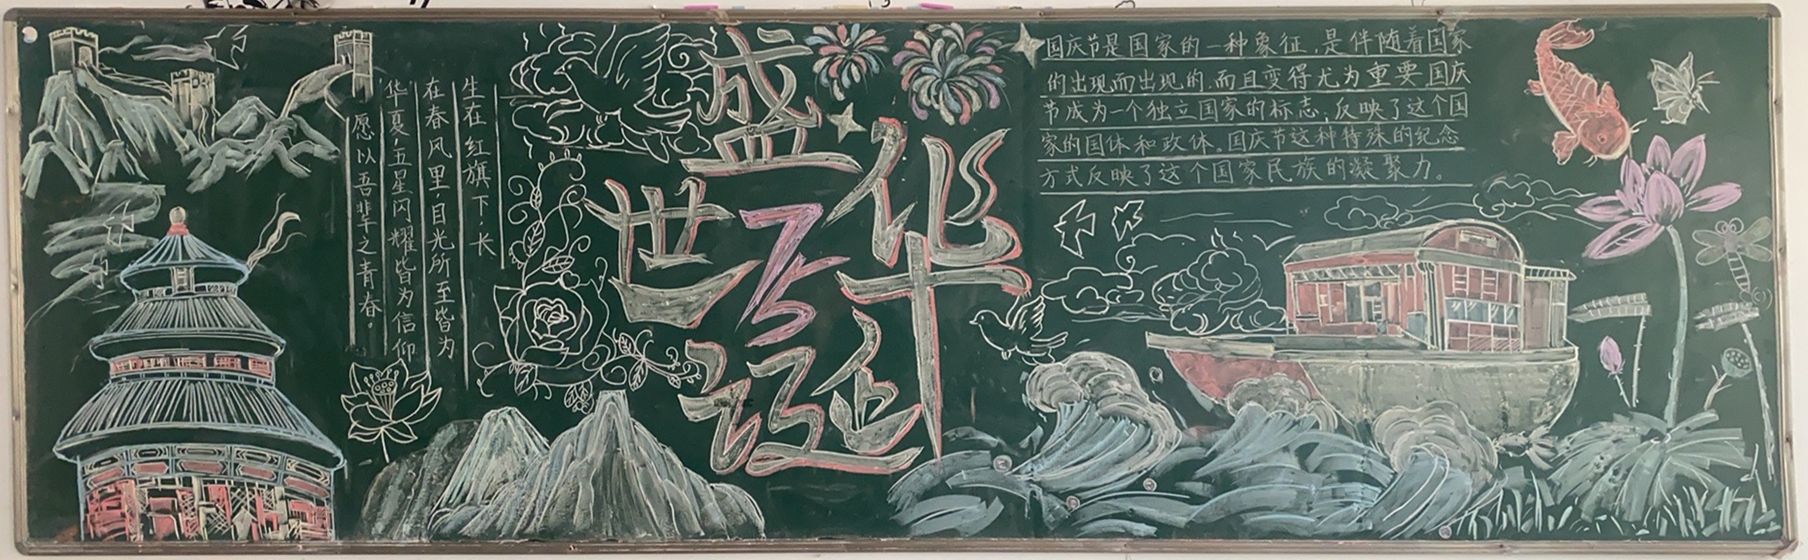 生在红旗下.长
在春风里目光所至皆为
华夏五星闪耀皆为信仰
愿以吾辈之青春。
盛世
华诞
75
国庆节是国家的一种象征,是伴随着国家
的出现而出现的,而且变得尤为重要,国庆
节成为一个独立国家的标志,反映了这个国
家的国体和政体,国庆节这种特殊的纪念
方式反映了这个国家民族的凝聚力。